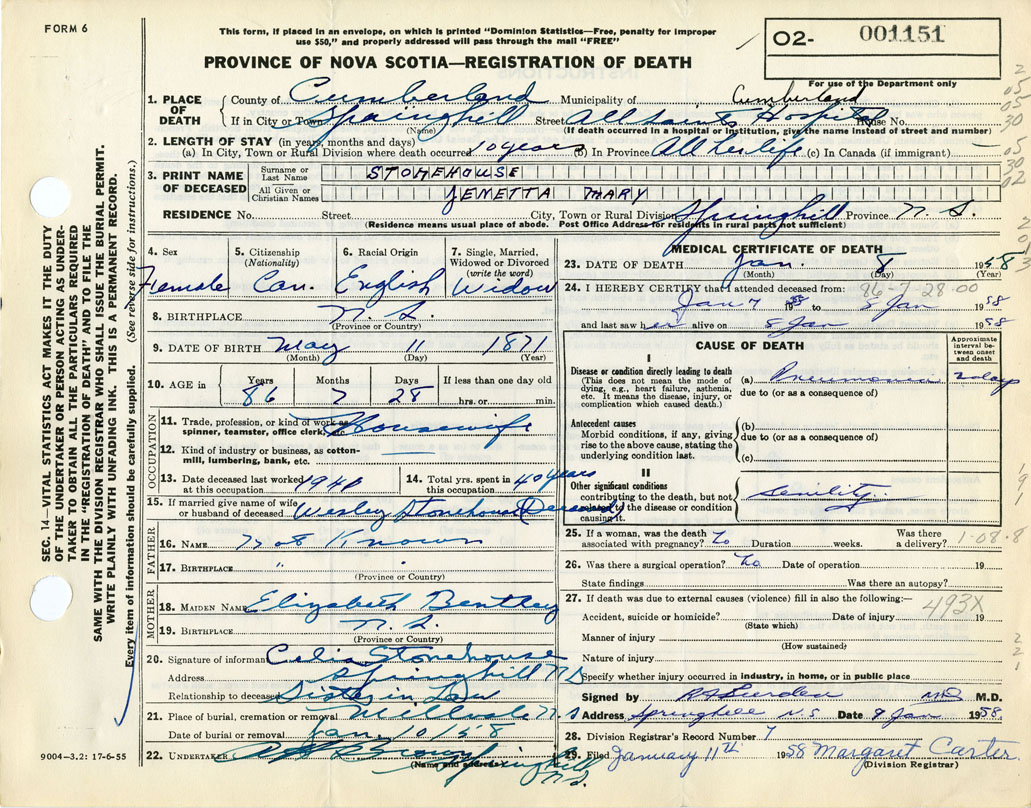 FORM 6
This form, if placed in an envelope, on which is printed "Dominion Statistics—Free, penalty for improper
use $50," and properly addressed will pass through the mail "FREE"
02- 001151
PROVINCE OF NOVA SCOTIA—REGISTRATION OF DEATH
For use of the Department only
1. PLACE OF DEATH
County of Cumberland Municipality of Cumberland
If in City or Town Springhill Street All Saints Hospital House No.
(Name) (If death occurred in a hospital or institution, give the name instead of street and number)
2. LENGTH OF STAY (in years, months and days)
(a) In City, Town or Rural Division where death occurred 10 years (b) In Province All her life (c) In Canada (if immigrant) —
3. PRINT NAME OF DECEASED
Surname or Last Name STONEHOUSE
All Given or Christian Names JEMETTA MARY
RESIDENCE No. Street City, Town or Rural Division Springhill Province N.S.
(Residence means usual place of abode. Post Office Address for residents in rural parts not sufficient)
4. Sex Female
5. Citizenship (Nationality) Can.
6. Racial Origin English
7. Single, Married, Widowed or Divorced (write the word) Widow
8. BIRTHPLACE N.S.
(Province or Country)
9. DATE OF BIRTH May 11 1871
(Month) (Day) (Year)
10. AGE in Years 86 Months 7 Days 28 If less than one day old hrs. or min.
OCCUPATION
11. Trade, profession, or kind of work as spinner, teamster, office clerk, etc. Housewife
12. Kind of industry or business, as cotton-mill, lumbering, bank, etc. —
13. Date deceased last worked at this occupation 1940
14. Total yrs. spent in this occupation 40 years
15. If married give name of wife or husband of deceased Wesley Stonehouse (Deceased)
FATHER
16. NAME Not Known
17. BIRTHPLACE " "
(Province or Country)
MOTHER
18. MAIDEN NAME Elizabeth Bentley
19. BIRTHPLACE N.S.
(Province or Country)
20. Signature of informant Celia Stonehouse
Address Springhill N S
Relationship to deceased Sister in Law
21. Place of burial, cremation or removal N.S
Date of burial or removal Jan. 10/58
22. UNDERTAKER Brown Springhill N.S.
(Name and address)
MEDICAL CERTIFICATE OF DEATH
23. DATE OF DEATH Jan. 8 1958
(Month) (Day) (Year)
24. I HEREBY CERTIFY that I attended deceased from: 86-7-28.00
Jan 7 1958 to 8 Jan 1958
and last saw her alive on 8 Jan 1958
CAUSE OF DEATH
Approximate interval between onset and death
I
Disease or condition directly leading to death
(This does not mean the mode of dying, e.g., heart failure, asthenia, etc. It means the disease, injury, or complication which caused death.)
(a) Pneumonia 2 days
due to (or as a consequence of)
Antecedent causes
Morbid conditions, if any, giving rise to the above cause, stating the underlying condition last.
(b)
due to (or as a consequence of)
(c)
II
Other significant conditions
contributing to the death, but not related to the disease or condition causing it.
Senility
25. If a woman, was the death associated with pregnancy? No Duration weeks. Was there a delivery? 1-08-8
26. Was there a surgical operation? No Date of operation 19
State findings Was there an autopsy?
27. If death was due to external causes (violence) fill in also the following:—
493X
Accident, suicide or homicide? Date of injury 19
(State which)
Manner of injury
(How sustained)
Nature of injury
Specify whether injury occurred in industry, in home, or in public place
Signed by MD M.D.
Address Springhill N.S Date 9 Jan 1958.
28. Division Registrar's Record Number 7
29. Filed January 11th 1958 Margaret Carter
(Division Registrar)
9004—3.2: 17-6-55
SEC. 14—VITAL STATISTICS ACT MAKES IT THE DUTY
OF THE UNDERTAKER OR PERSON ACTING AS UNDER-
TAKER TO OBTAIN ALL THE PARTICULARS REQUIRED
IN THE "REGISTRATION OF DEATH" AND TO FILE THE
SAME WITH THE DIVISION REGISTRAR WHO SHALL ISSUE THE BURIAL PERMIT.
WRITE PLAINLY WITH UNFADING INK. THIS IS A PERMANENT RECORD.
Every item of information should be carefully supplied. (See reverse side for instructions.)